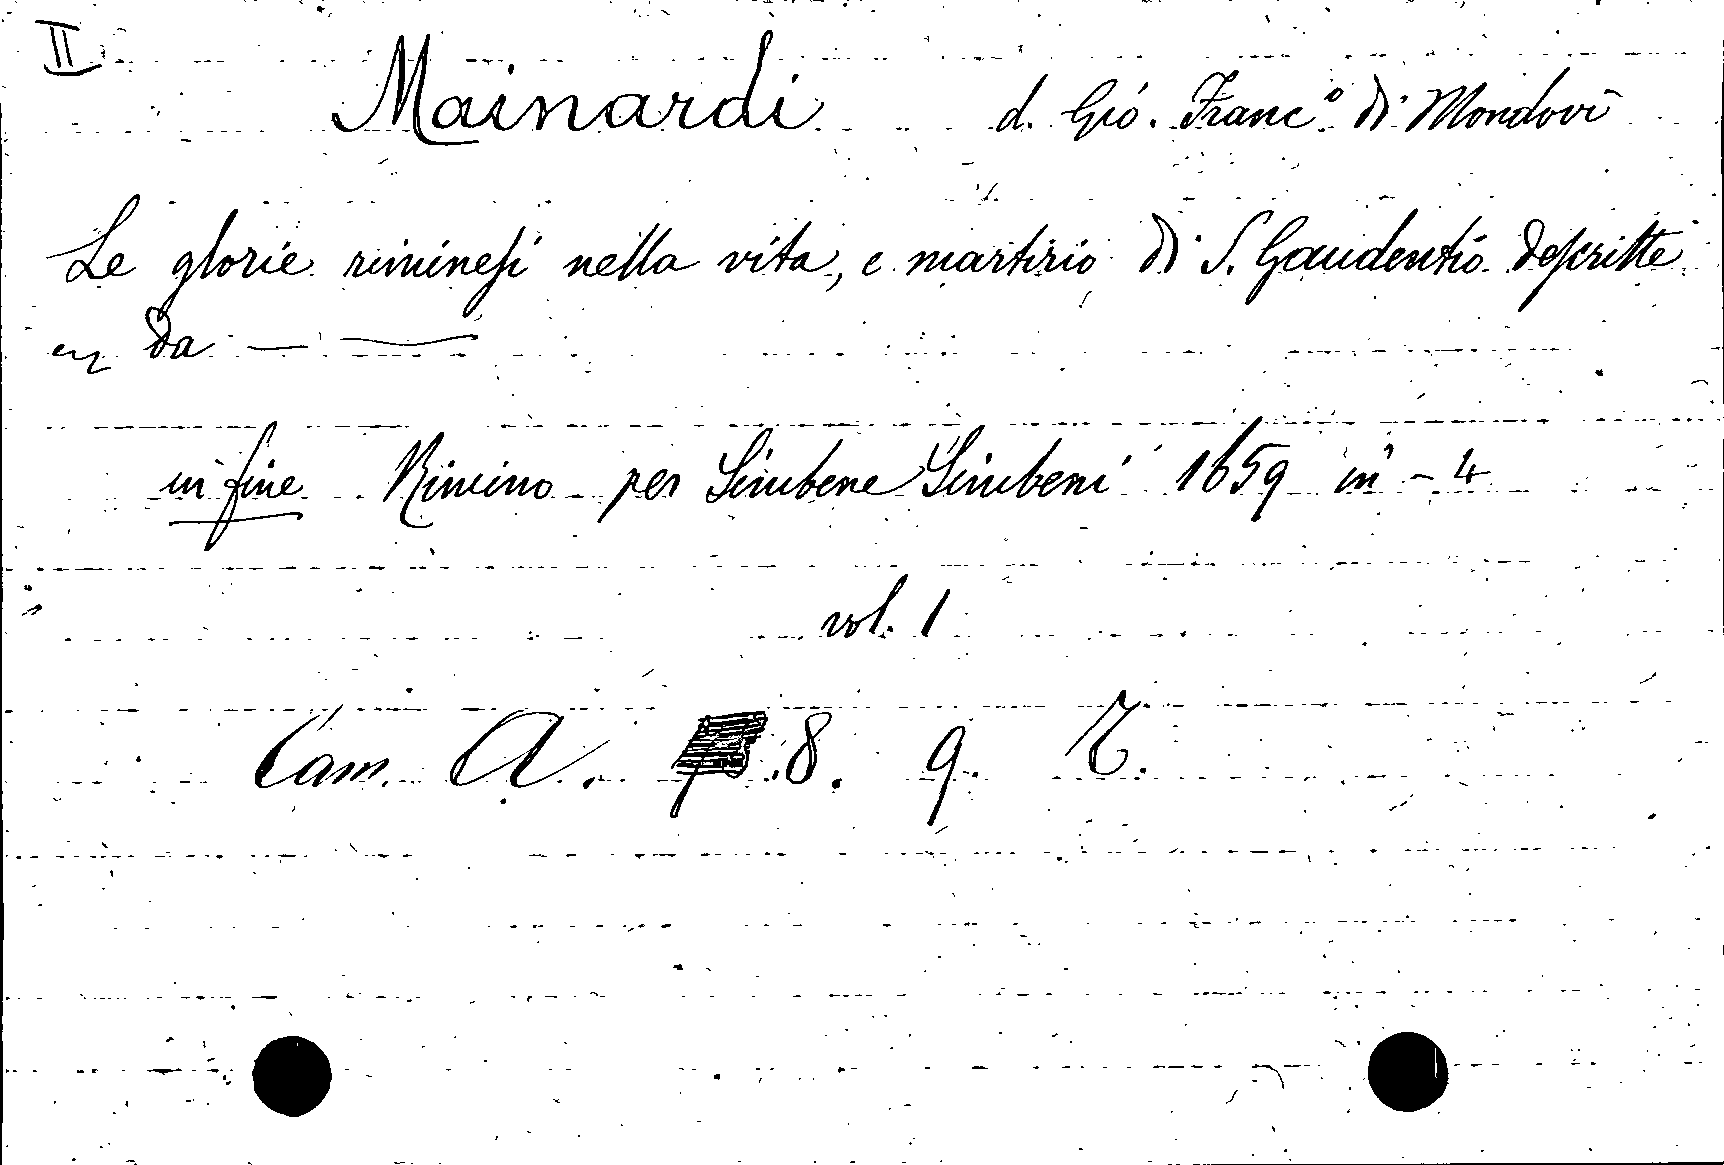 II
Mainardi d. Gio. Franc.º di Mondovì
Le glorie riminesi nella vita, e martirio di S. Gaudentio descritte
da — —
in fine Rimino per Simbene Simbeni 1659 in - 4
vol. 1
Cam. A. .8. 9.